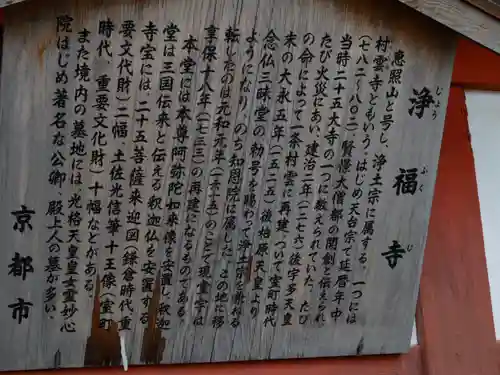 浄福寺
じょう
ふく
じ
恵照山と号し、浄土宗に属する。一つには
村雲寺ともいう。はじめ天台宗で延暦年中
(七八二〜八〇二)賢憬大僧都の開創と伝えられ、
当時二十五大寺の一つに数えられていた。たび
たび火災にあい、建治二年(一二七六)後宇多天皇
の命によって一条村雲に再建、ついで室町時代
末の大永五年(一五二五)後柏原天皇より
念仏三昧堂の勅号を賜わって浄土宗を兼ねる
ようになり、のち知恩院に属した。この地に移
転したのは元和元年(一六一五)のことで現堂宇は
享保十八年(一七三三)の再建になるものである。
本堂には本尊阿弥陀如来像を安置し、釈迦
堂は三国伝来と伝える釈迦仏を安置する。
寺宝には、二十五菩薩来迎図(鎌倉時代、重
要文化財)二幅、土佐光信筆十王像(室町
時代、重要文化財)十幅などがある。
また境内の墓地には、光格天皇皇女霊妙心
院はじめ著名な公卿、殿上人の墓が多い。
京都市